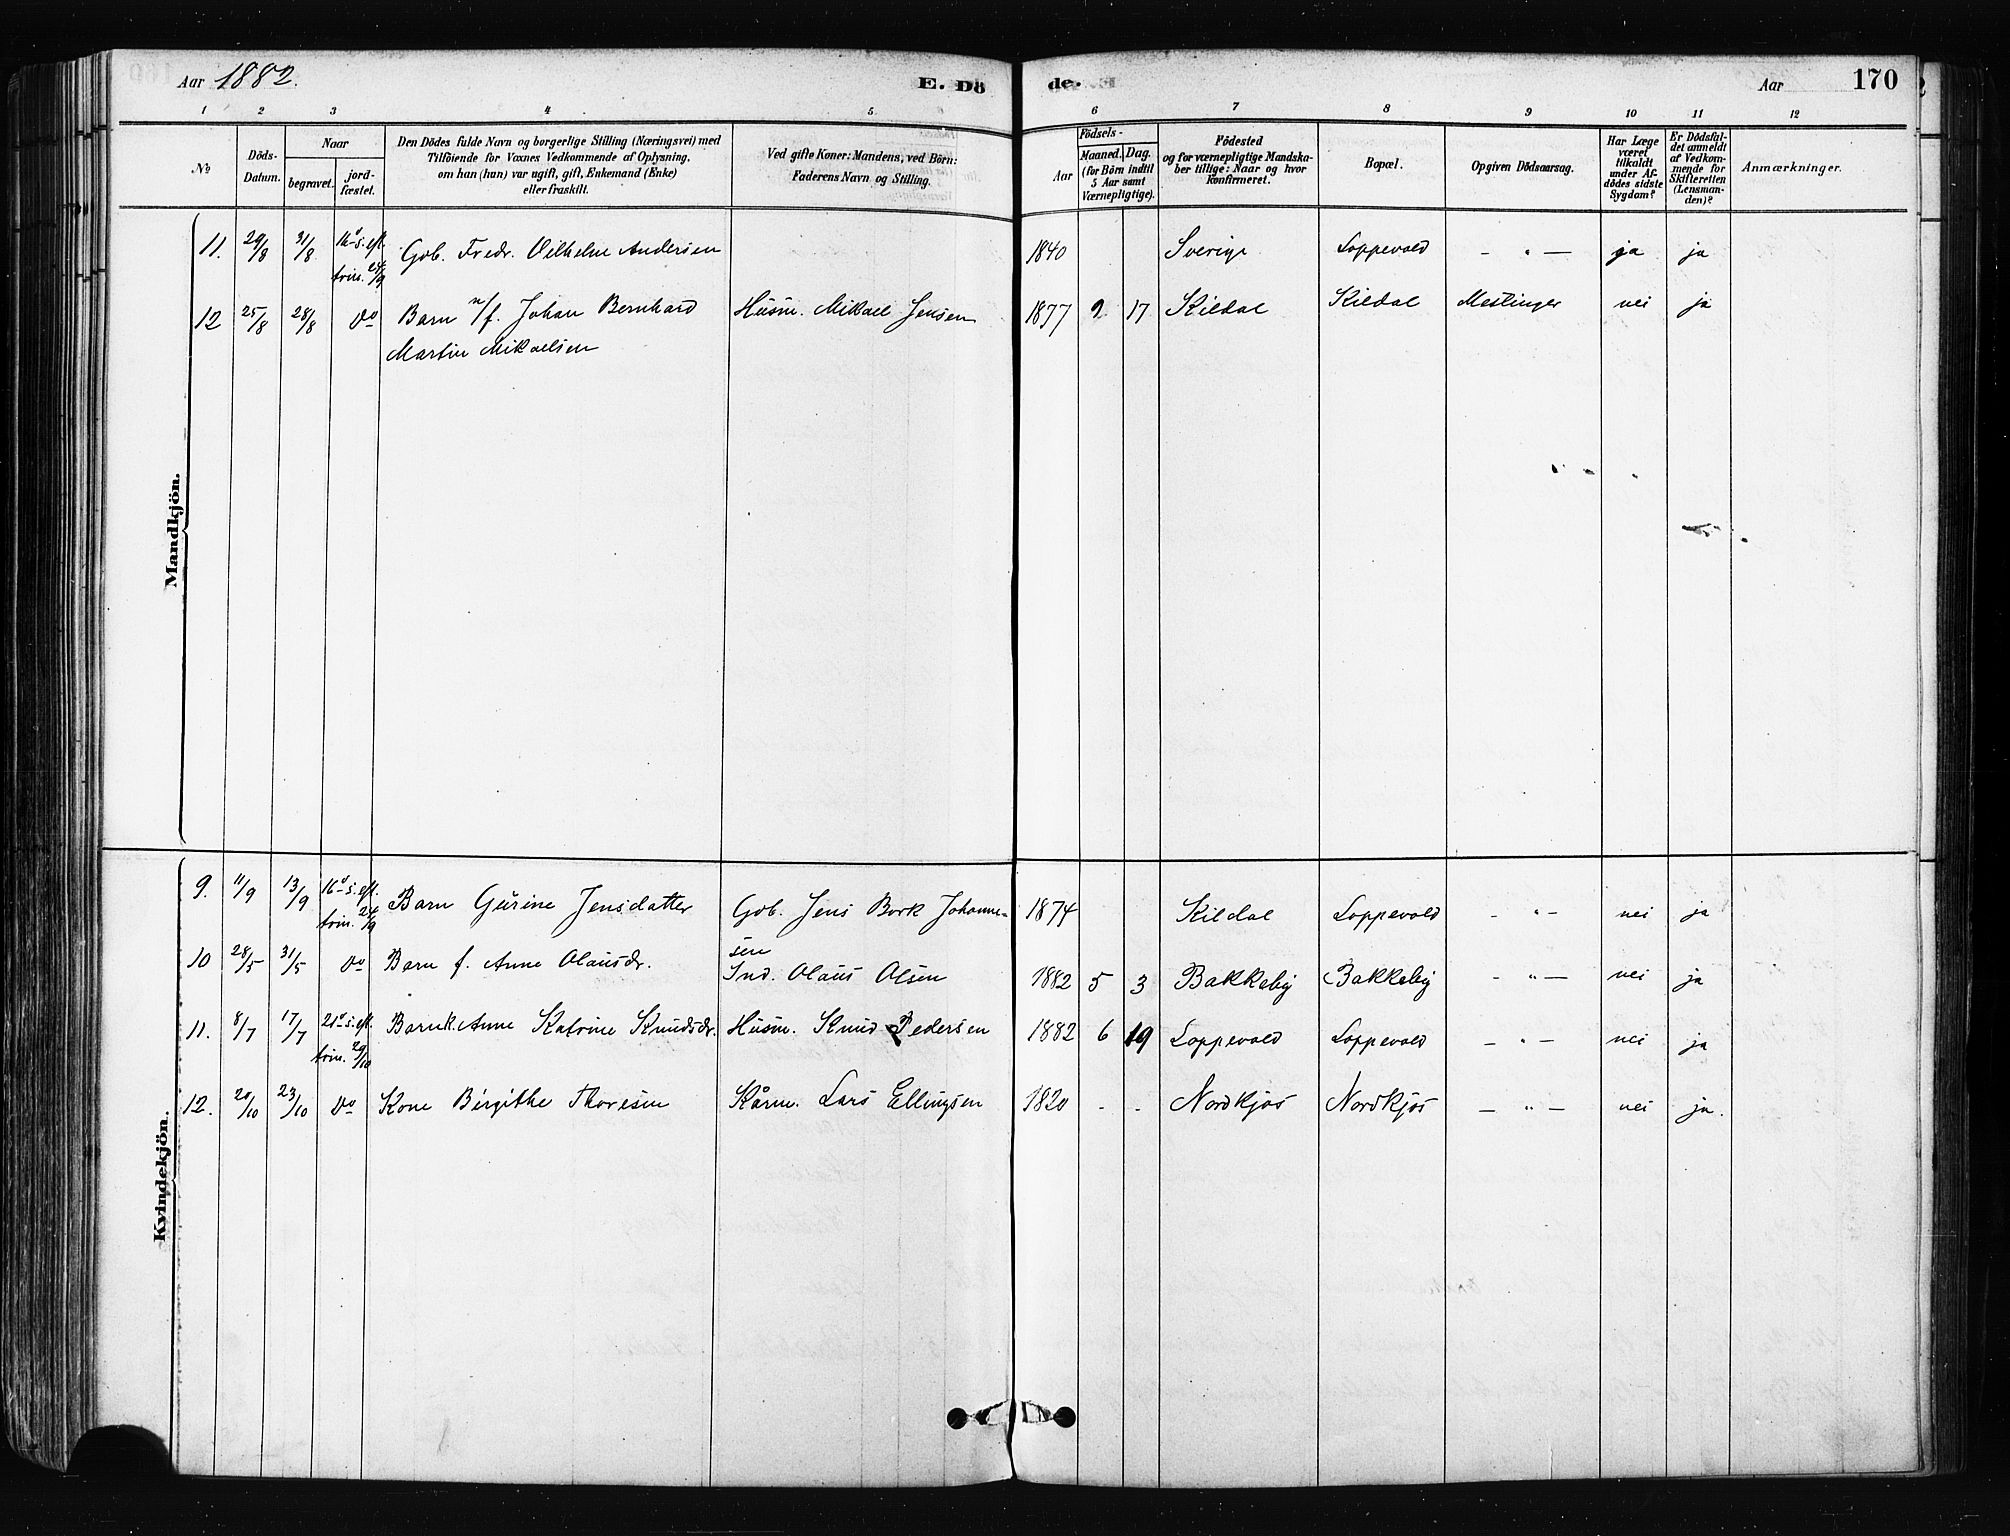 Aar 1882.
E. Dö
de.
Aar
170
1 2 3 4 5 6 7 8 9 10 11 12
No
Döds-Datum.
Naar
begravet.
jord-fæstet.
Den Dödes fulde Navn og borgerlige Stilling (Næringsvei) med
Tilföiende for Voxnes Vedkommende af Oplysning,
om han (hun) var ugift, gift, Enkemand (Enke)
eller fraskilt.
Ved gifte Koner: Mandens, ved Börn:
Faderens Navn og Stilling.
Födsels-
Aar
Maaned. Dag.
(for Börn indtil
5 Aar samt
Værnepligtige).
Födested
og for værnepligtige Mandska-
ber tillige: Naar og hvor
konfirmeret.
Bopæl.
Opgiven Dödsaarsag.
Har Læge
været
tilkaldt
under Af-
dödes sidste
Sygdom?
Er Dödsfal-
det anmeldt
af Vedkom-
mende for
Skifteretten
(Lensman-
den)?
Anmærkninger.
Mandkjön.
11. 29/8 31/8 16d s. eft. trin. 24/9 Gob. Fredr. Vilhelm Andersen 1840 Sverige Loppevold — " — ja ja
12 25/8 28/8 do Barn n/f. Johan Bernhard Husm. Mikael Jensen 1877 2 17 Kildal Kildal Meslinger nei ja
Martin Mikaelsen
Kvindekjön.
9. 11/9 13/9 16d s. eft. trin. 24/9 Barn Gurine Jensdatter Gob. Jens Bork Johanne= 1874 Kildal Loppevold — " — nei ja
sen
10 28/5 31/5 do Barn f. Anne Olausdr. Ind. Olaus Olsen 1882 5 3 Bakkeby Bakkeby — " — nei ja
11. 8/7 17/7 21d s. eft. trin. 29/10 Barn Anne Katrine Knudsdr. Husm. Knud Pedersen 1882 6 19 Loppevold Loppevold — " — nei ja
12. 20/10 23/10 do Kone Birgithe Thoresen Kårm. Lars Ellingsen 1820 - - Nordkjos Nordkjos — " — nei ja.